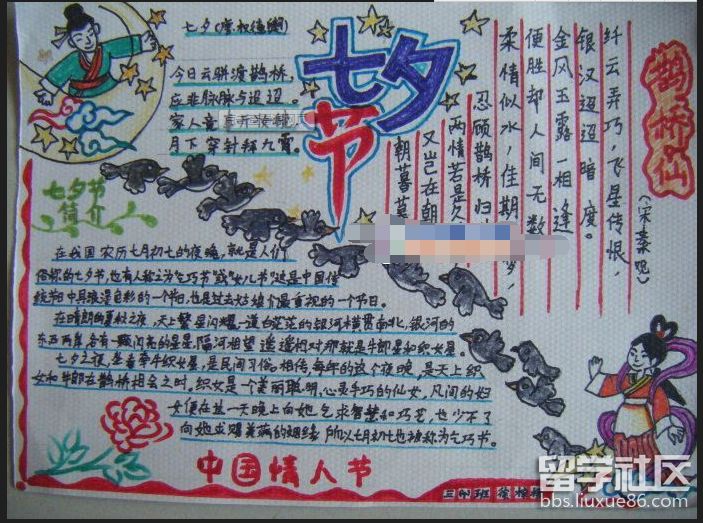 七夕节
七夕(唐.权德舆)
今日云骈渡鹊桥，
应非脉脉与迢迢。
家人竟
月下穿针拜九霄。
鹊桥仙
(宋秦观)
纤云弄巧，飞星传恨，
银汉迢迢暗度。
金风玉露一相逢
便胜却人间无数
柔情似水，佳期 梦，
忍顾鹊桥归
两情若是久
又岂在朝
朝暮暮
七夕节
简介
在我国农历七月初七的夜晚，就是人们
俗称的七夕节，也有人称之为"乞巧节"或"女儿节"这是中国传
统节日中具浪漫色彩的一个节日，也是过去姑娘们最重视的一个节日。
在晴朗的夏秋之夜，天上繁星闪耀一道白茫茫的银河横贯南北，银河的
东西两岸，各有一颗闪亮的星星，隔河相望 遥遥相对那就是牛郎星和织女星。
七夕之夜，坐看牵牛织女星，是民间习俗。相传，每年的这个夜晚，是天上织
女和牛郎在鹊桥相会之时。织女是一个美丽聪明，心灵手巧的仙女，凡间的妇
女便在这一天晚上向她乞求智慧和巧艺，也少不了
向她求赐美满的姻缘，所以七月初七也被称为乞巧节。
中国情人节
留学社区
bbs.liuxue86.com